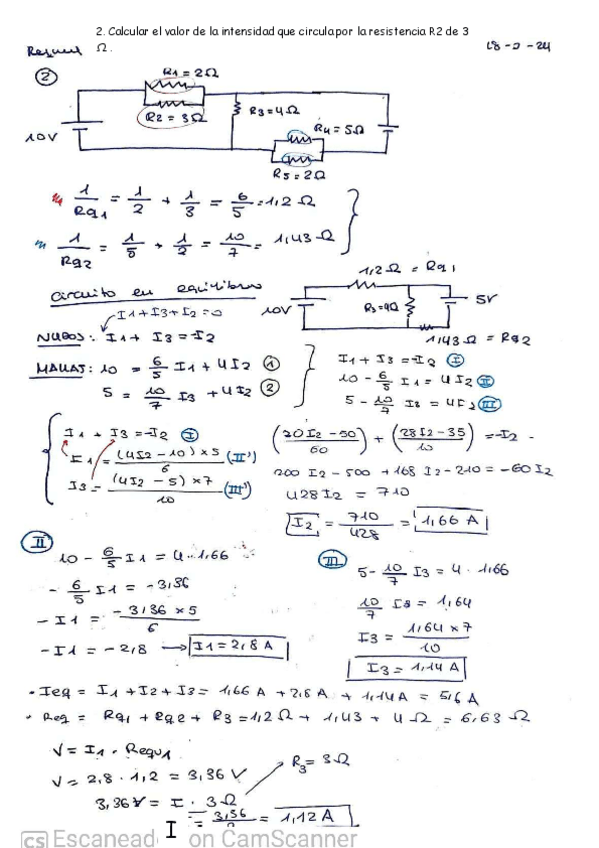 2. Calcular el valor de la intensidad que circula por la resistencia R2 de 3
Ω.
18-2-24
②
R1 = 2Ω
R2 = 3Ω
R3 = 4Ω
R4 = 5Ω
10V
R5 = 2Ω
1/Rq1 = 1/2 + 1/3 = 6/5 = 1,2 Ω
1/Rq2 = 1/5 + 1/2 = 10/7 = 1,43 Ω
1,2 Ω = Rq1
circuito en equilibrio
10V
R3=4Ω
5V
1,43 Ω = Rq2
I1+I3+I2=0
NUDOS: I1+ I3=-I2
MALLAS: 10 = 6/5 I1 + 4I2 ①
5 = 10/7 I3 + 4I2 ②
I1 + I3 = -I2 Ⅰ
10 - 6/5 I1 = 4I2 Ⅱ
5 - 10/7 I3 = 4I2 Ⅲ
I1 + I3 = -I2 Ⅰ
I1 = (4I2 - 10) × 5 / 6 (II')
I3 = (4I2 - 5) × 7 / 10 (III')
(20I2 - 50 / 60) + (28I2 - 35 / 10) = -I2
200 I2 - 500 + 168 I2 - 210 = -60 I2
428 I2 = 710
I2 = 710/428 = 1,66 A
Ⅱ
10 - 6/5 I1 = 4 · 1,66
- 6/5 I1 = -3,36
- I1 = -3,36 × 5 / 6
- I1 = -2,8 → I1 = 2,8 A
Ⅲ
5 - 10/7 I3 = 4 · 1,66
10/7 I3 = 1,64
I3 = 1,64 × 7 / 10
I3 = 1,14 A
· Ieq = I1 + I2 + I3 = 1,66 A + 2,8 A + 1,14A = 5,6 A
· Req = Rq1 + Rq2 + R3 = 1,2 Ω + 1,43 + 4 Ω = 6,63 Ω
V = I1 · Requ1
V = 2,8 · 1,2 = 3,36 V
R3 = 3Ω
3,36V = I · 3Ω
I = 3,36 = 1,12 A
CS Escanead on CamScanner